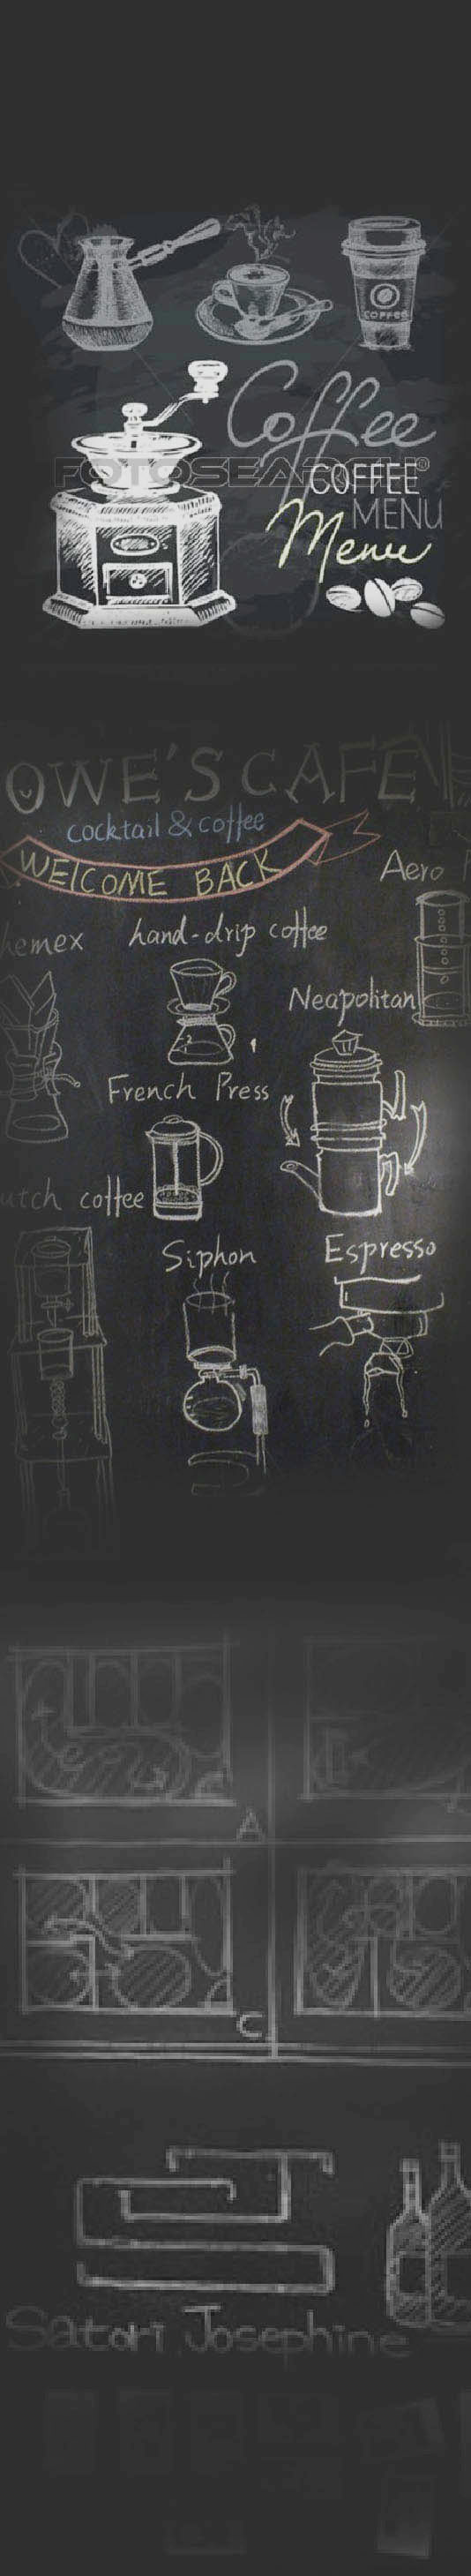 COFFEE
Coffee
FOTOSEARCH®
COFFEE
MENU
Menu
OWE'S CAFE
cocktail & coffee
WELCOME BACK
Aero
hemex
hand-drip coffee
Neapolitan
French Press
utch coffee
Siphon
Espresso
A
C
Satori Josephine